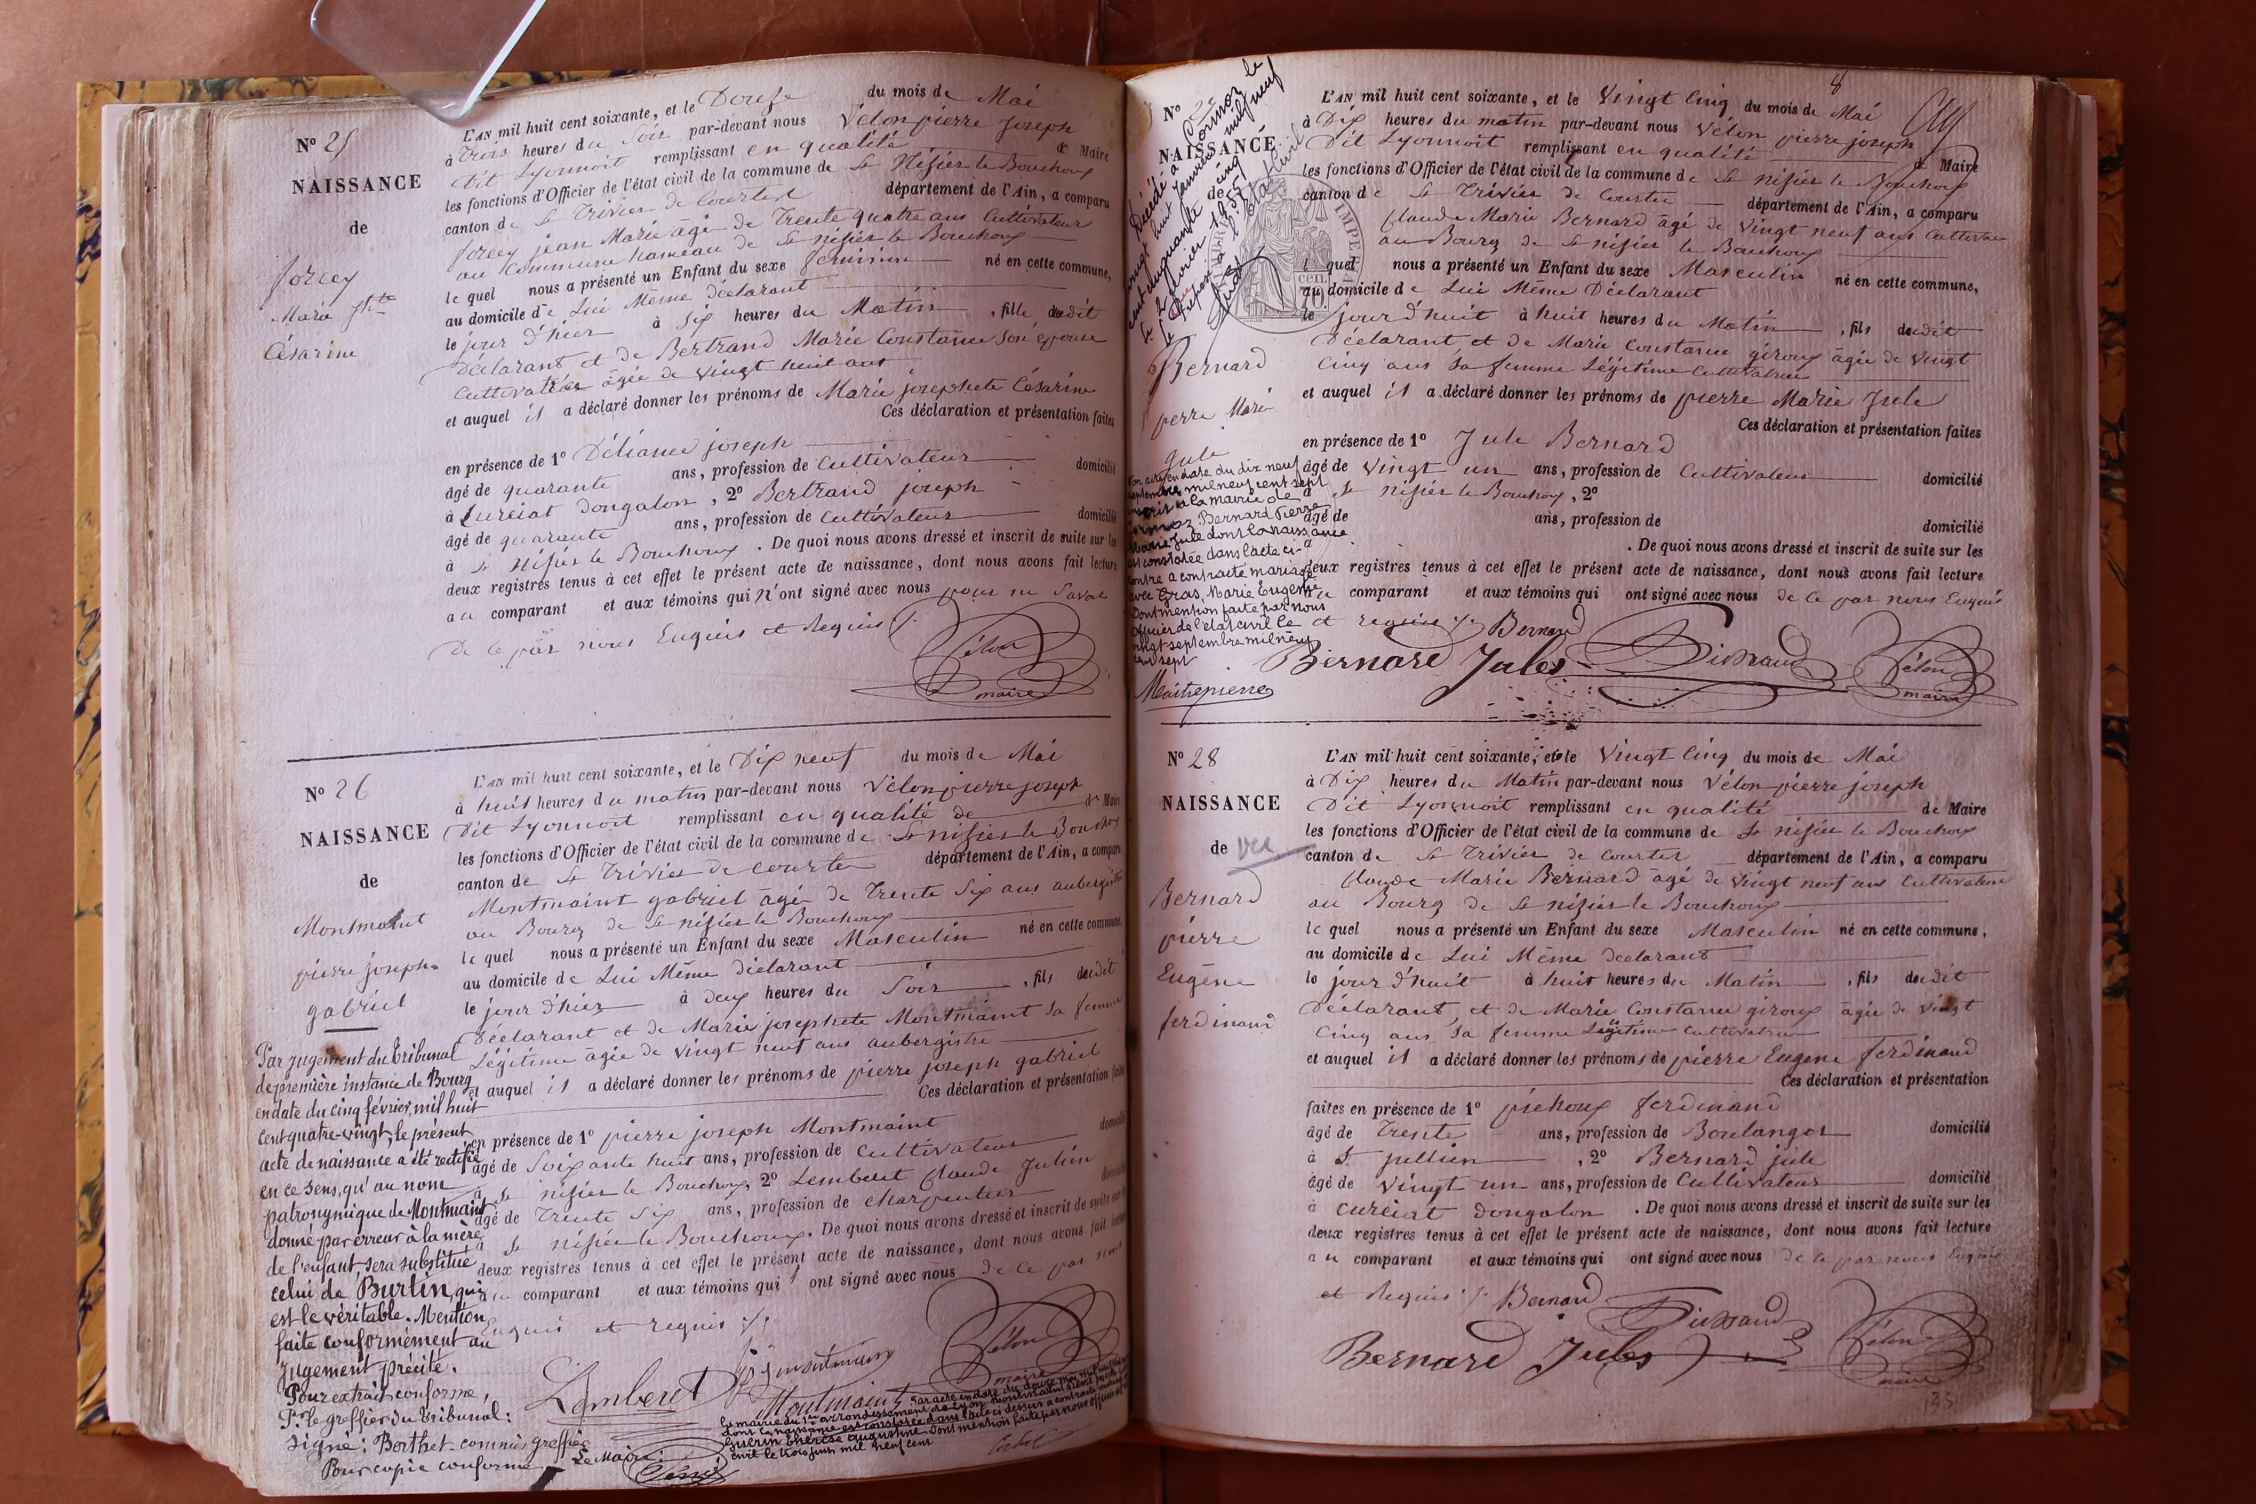 N° 25
NAISSANCE
de
Forcey
Marie Jtte
Césarine
L'AN mil huit cent soixante, et le Douze du mois de Mai
à Trois heures du Soir par-devant nous Vélon pierre Joseph
dit Lyonnoit remplissant en qualité de Maire
les fonctions d'Officier de l'état civil de la commune de St Nisier le Bouchoux
canton de St Trivier de Courtes département de l'Ain, a comparu
Forcey jean Marie âgé de Trente quatre ans Cultivateur
au Commune hameau de St nisier le Bouchoux
le quel nous a présenté un Enfant du sexe féminin né en cette commune,
au domicile de Lui Même déclarant
le jour d'hier à six heures du Matin, fille dudit
Déclarant et de Bertrand Marie Constance son épouse
Cultivatrice âgée de vingt huit ans
et auquel il a déclaré donner les prénoms de Marie josephete Césarine
Ces déclaration et présentation faites
en présence de 1° Déliance joseph
âgé de quarante ans, profession de Cultivateur domicilié
à Curciat dongalon, 2° Bertrand joseph
âgé de quarante ans, profession de Cultivateur domicilié
à St Nisier le Bouchoux. De quoi nous avons dressé et inscrit de suite sur les
deux registres tenus à cet effet le présent acte de naissance, dont nous avons fait lecture
au comparant et aux témoins qui n'ont signé avec nous pour ne Savoir
De ce par nous Enquis et Requis
Vélon
maire
N° 26
NAISSANCE
de
Montmaint
pierre joseph
gabriel
L'AN mil huit cent soixante, et le Dix neuf du mois de Mai
à huit heures du matin par-devant nous Vélon pierre joseph
Dit Lyonnoit remplissant en qualité de de Maire
les fonctions d'Officier de l'état civil de la commune de St nisier le Bouchoux
canton de St Trivier de courtes département de l'Ain, a comparu
Montmaint gabriel âgé de Trente Six ans aubergiste
au Bourg de St nisier le Bouchoux
le quel nous a présenté un Enfant du sexe Masculin né en cette commune,
au domicile de Lui Même déclarant
le jour d'hier à deux heures du Soir, fils dudit
Déclarant et de Marie josephete Montmaint Sa femme
Légitime âgée de vingt neuf ans aubergiste
et auquel il a déclaré donner les prénoms de pierre joseph gabriel
Ces déclaration et présentation faites
en présence de 1° pierre joseph Montmaint
âgé de Soixante huit ans, profession de Cultivateur domicilié
à St nisier le Bouchoux, 2° Lemberet Claude Julien
âgé de Trente Six ans, profession de Charpentier domicilié
à St nisier le Bouchoux. De quoi nous avons dressé et inscrit de suite sur les
deux registres tenus à cet effet le présent acte de naissance, dont nous avons fait lecture
au comparant et aux témoins qui ont signé avec nous de ce par nous
Enquis et requis
Lemberet
Montmaint
Vélon
maire
Par jugement du Tribunal
de première instance de Bourg
en date du cinq février, mil huit
cent quatre-vingt, le présent
acte de naissance a été rectifié
en ce sens, qu'au nom
patronymique de Montmaint
donné par erreur à la mère
de l'enfant, sera substitué
celui de Burtin, qui
est le véritable. Mention
faite conformément au
jugement précité.
Pour extrait conforme,
Pr le greffier du Tribunal:
signé: Berthet commis greffier
Pour copie conforme
Le Maire:
Par acte en date du douze mai mil
la mairie du 1er arrondissement de Lyon Montmaint
dont la naissance est constatée dans l'acte ci dessus a contracté mariage
Guerin Thérèse Augustine Dont mention faite par nous officier
civil le trois juin mil neuf cent
N° 27
NAISSANCE
de
Bernard
pierre Marie
Jule
Décédé à Cormoz le
vingt huit janvier mil neuf
cent cinquante cinq
le 2 février 1955
L'AN mil huit cent soixante, et le Vingt Cinq du mois de Mai
à Dix heures du matin par-devant nous Vélon pierre joseph
Dit Lyonnoit remplissant en qualité de Maire
les fonctions d'Officier de l'état civil de la commune de St nisier le Bouchoux
canton de St Trivier de Courtes département de l'Ain, a comparu
Claude Marie Bernard âgé de vingt neuf ans Cultivateur
au Bourg de St nisier le Bouchoux
le quel nous a présenté un Enfant du sexe Masculin né en cette commune,
au domicile de Lui Même Déclarant
le jour d'huit à huit heures du Matin, fils dudit
Déclarant et de Marie Constance giroux âgée de vingt
Cinq ans Sa femme Légitime Cultivatrice
et auquel il a déclaré donner les prénoms de pierre Marie Jule
Ces déclaration et présentation faites
en présence de 1° Jule Bernard
âgé de vingt un ans, profession de Cultivateur domicilié
à St nisier le Bouchoux, 2°
âgé de ans, profession de domicilié
à . De quoi nous avons dressé et inscrit de suite sur les
deux registres tenus à cet effet le présent acte de naissance, dont nous avons fait lecture
au comparant et aux témoins qui ont signé avec nous de ce par nous Enquis
et requis Bernard
Bernard Jules
Vélon
maire
Par acte en date du dix neuf
septembre mil neuf cent sept
inscrit à la mairie de
Cormoz Bernard Pierre
Marie Jule dont la naissance
est constatée dans l'acte ci-
contre a contracté mariage
avec Gras Marie Eugénie
Dont mention faite par nous
officier de l'état civil le
vingt septembre mil neuf
cent sept
Maitrepierre
N° 28
NAISSANCE
de
Bernard
pierre
Eugène
ferdinand
L'AN mil huit cent soixante, et le Vingt Cinq du mois de Mai
à Dix heures du Matin par-devant nous Vélon pierre joseph
Dit Lyonnoit remplissant en qualité de Maire
les fonctions d'Officier de l'état civil de la commune de St nisier le Bouchoux
canton de St Trivier de Courtes département de l'Ain, a comparu
Claude Marie Bernard âgé de vingt neuf ans Cultivateur
au Bourg de St nisier le Bouchoux
le quel nous a présenté un Enfant du sexe Masculin né en cette commune,
au domicile de Lui Même déclarant
le jour d'huit à huit heures du Matin, fils dudit
Déclarant, et de Marie Constance giroux âgée de vingt
Cinq ans Sa femme Légitime Cultivatrice
et auquel il a déclaré donner les prénoms de pierre Eugene ferdinand
Ces déclaration et présentation
faites en présence de 1° piehoux ferdinand
âgé de Trente ans, profession de Boulanger domicilié
à St jullien, 2° Bernard jule
âgé de vingt un ans, profession de Cultivateur domicilié
à Curciat dongalon. De quoi nous avons dressé et inscrit de suite sur les
deux registres tenus à cet effet le présent acte de naissance, dont nous avons fait lecture
au comparant et aux témoins qui ont signé avec nous de ce par nous Enquis
et Requis Bernard
Bernard Jules
Vélon
maire